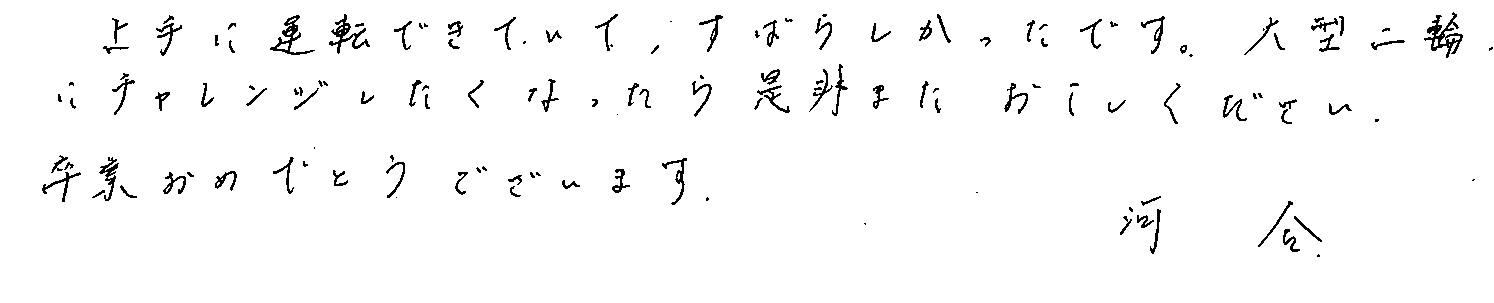 上手に運転できていて、すばらしかったです。大型二輪
にチャレンジしたくなったら是非また おこしください。
卒業おめでとうございます。
河 合